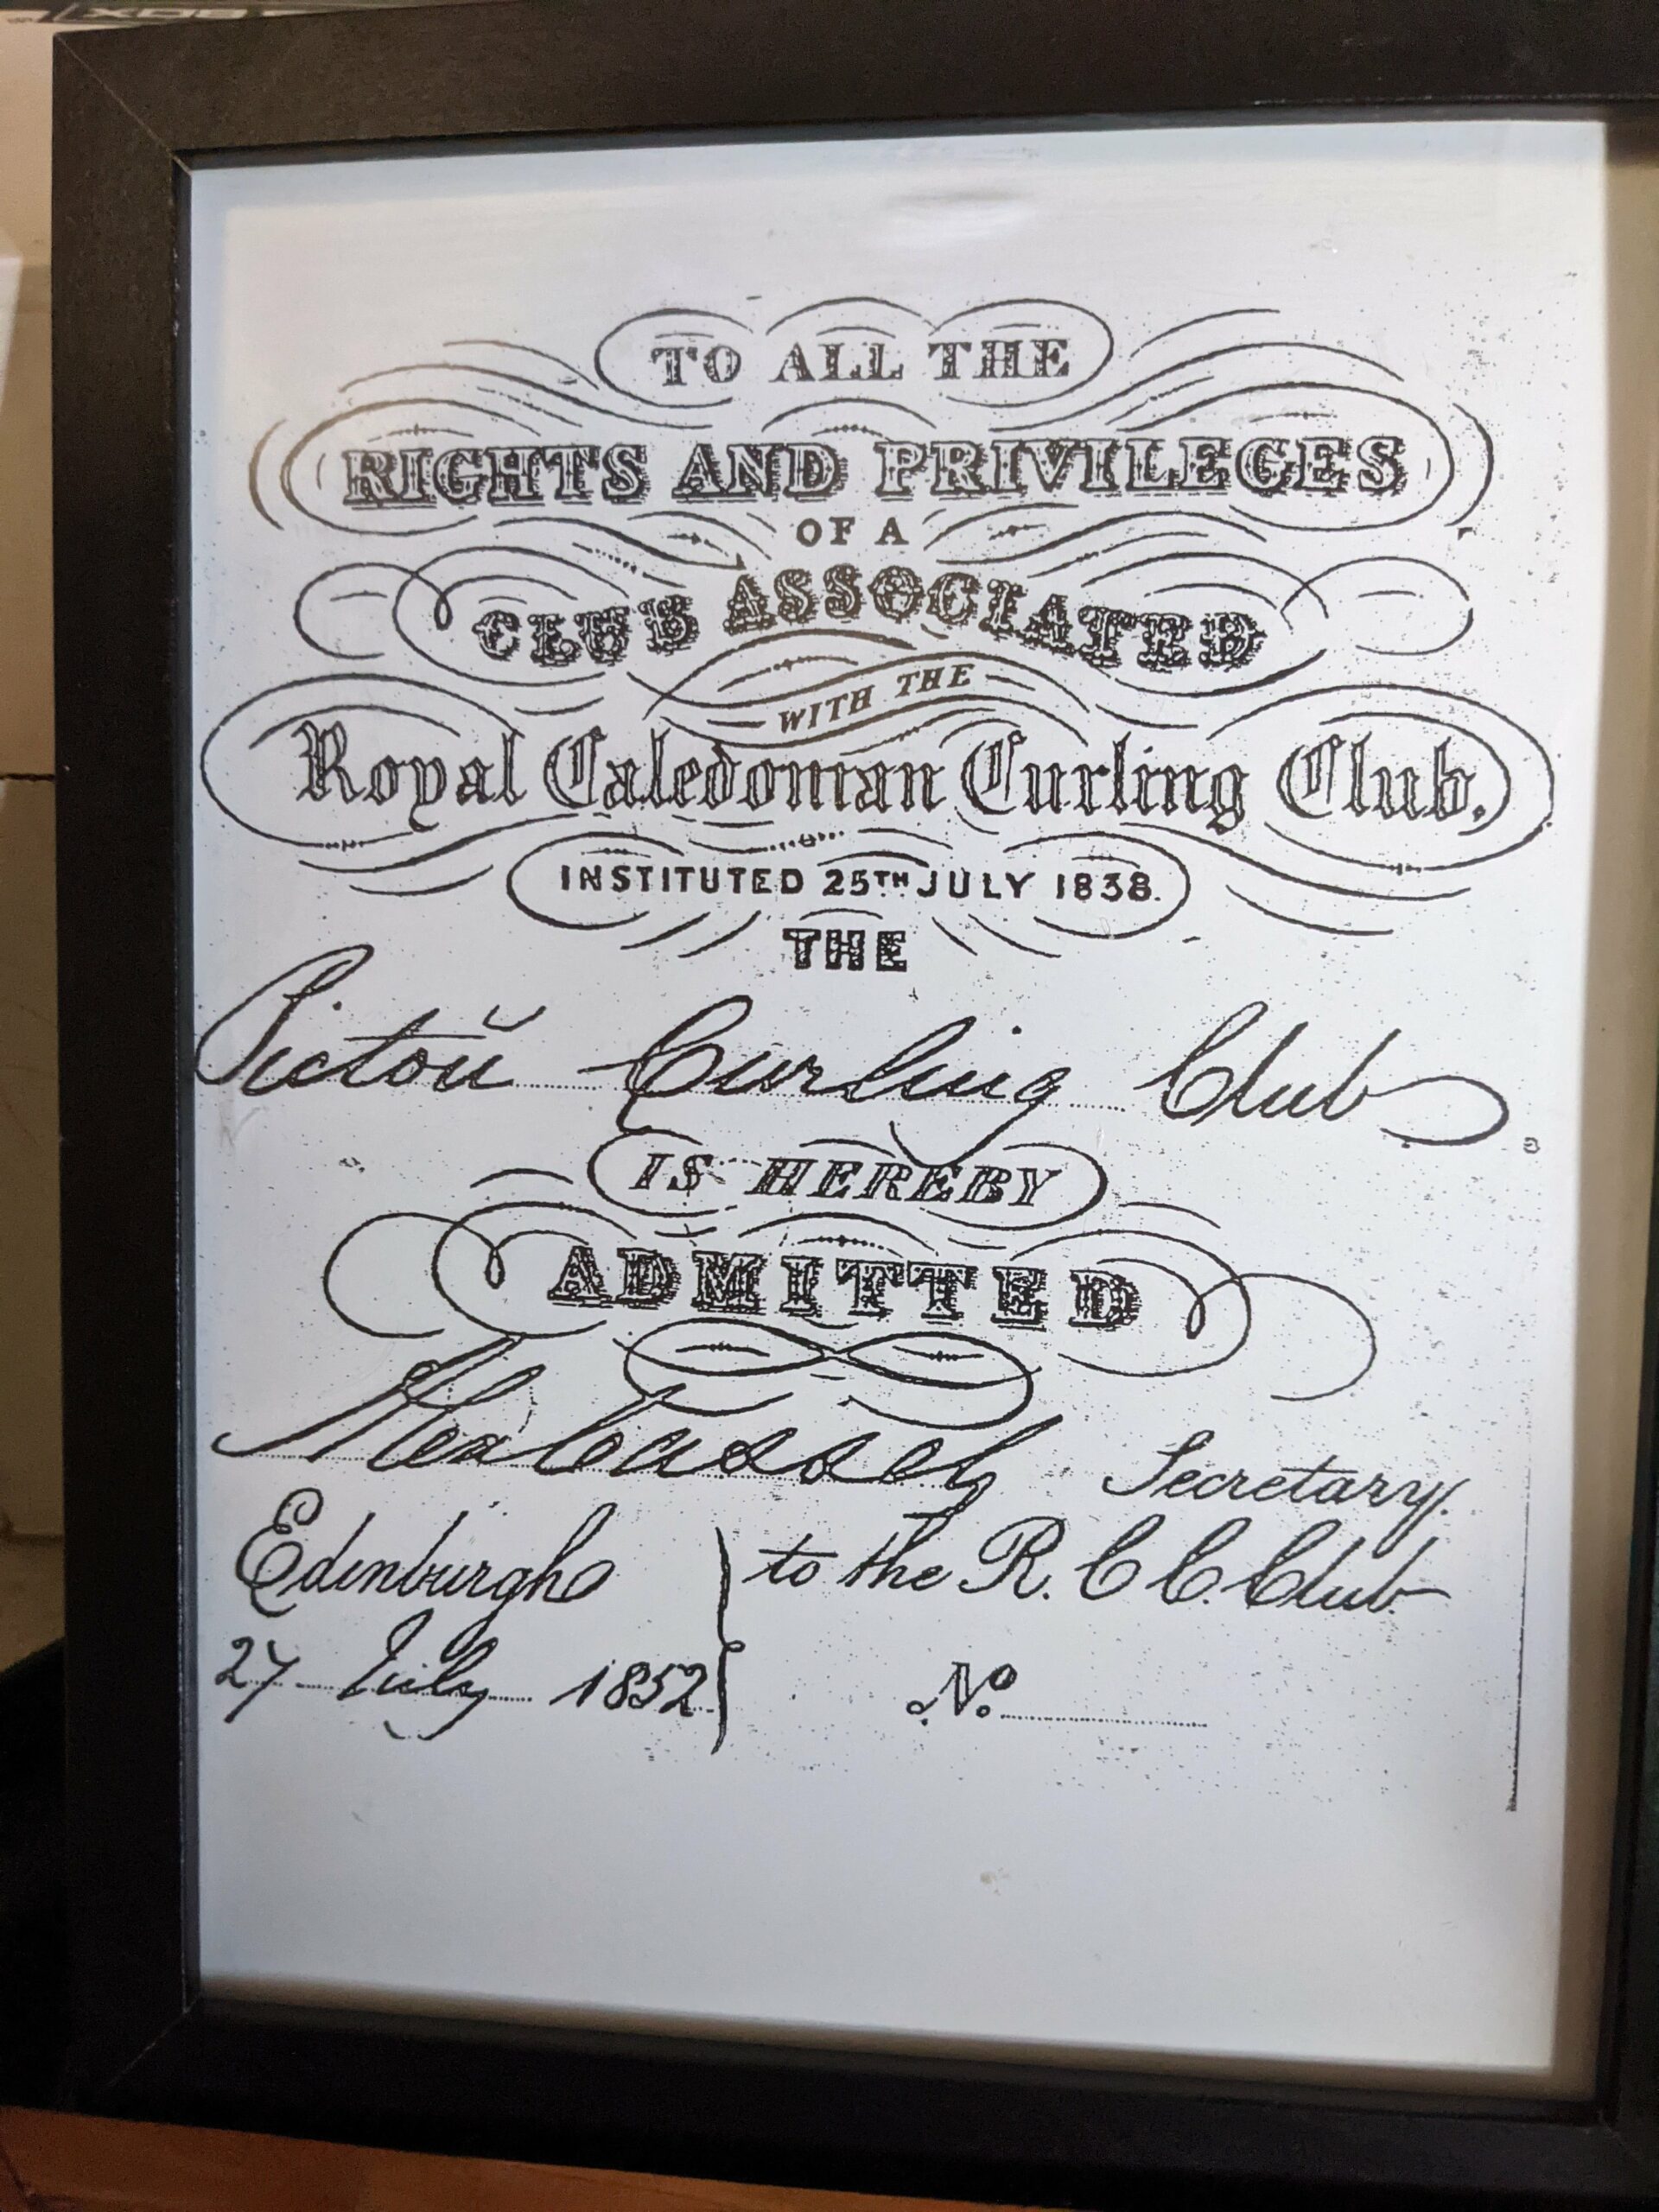 TO ALL THE
RIGHTS AND PRIVILEGES
OF A
CLUB ASSOCIATED
WITH THE
Royal Caledonian Curling Club.
INSTITUTED 25TH JULY 1838.
THE
Pictou Curling Club
IS HEREBY
ADMITTED
Secretary.
Edinburgh to the R. C. C. Club
27 July 1852 No